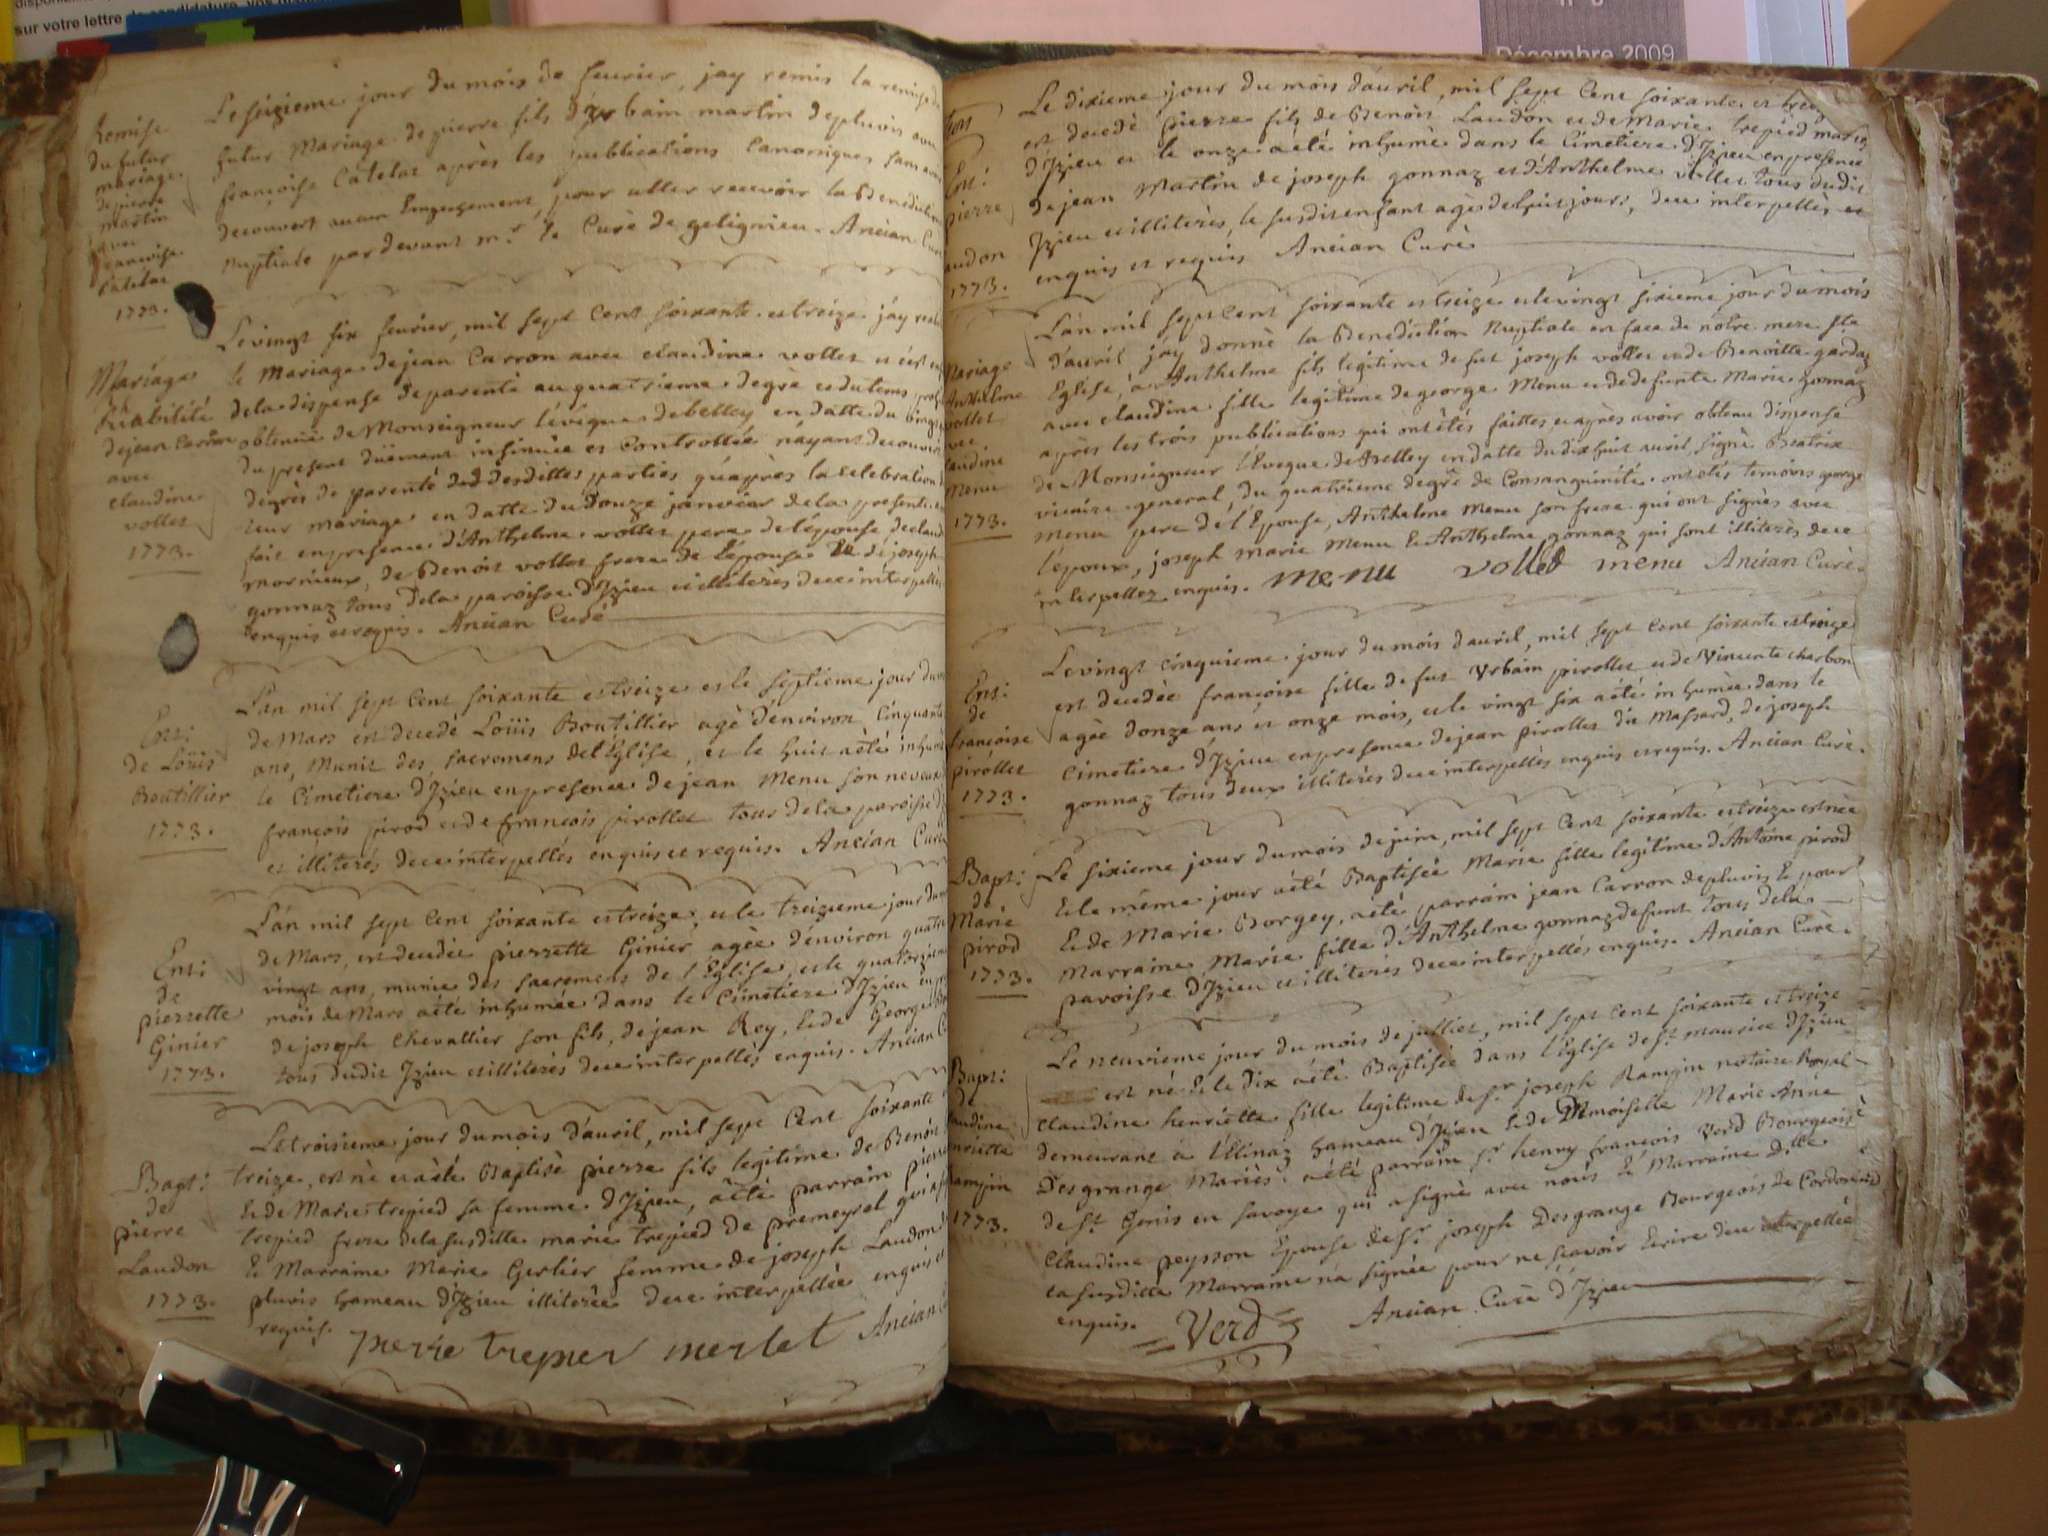 sur votre lettre de candidature, vos
Décembre 2009
Remise
du futur
mariage
de pierre
martin
avec
francoise
Catelat
1773.
Le seizieme jour du mois de feurier, jay remis la remise de
futur Mariage de pierre fils d'urbain martin de pluvis avec
francoise Catelat après les publications Canoniques sans avoir
decouvert aucun Empechement, pour aller recevoir la Benediction
Nuptiale par devant mr. le Curé de gelignieu. Ancian Curé
Mariage
Rhabilité
de jean Carron
avec
claudine
vollet
1773.
Le vingt six feurier, mil sept Cent soixante et treize j'ay
le Mariage de jean Carron avec claudine vollet
de la dispense de parenté au quatrieme degrè et du tems
obtenüe de Monseigneur l'évêque de belley en datte du vingt
du present düement insinuée et Controllée n'ayant decouvert
degrès de parenté desdittes parties qu'après la celebration
leur mariage en datte du Douze janvier de la presente
fait en presence d'Anthelme vollet pere de l'épouse, de claude
mornieux, de Benoit vollet frere de l'épouse de joseph
gonnaz tous de la paroisse d'Izieu et illiterès de ce interpellés
enquis et requis. Ancian Curé
Ent:
de Loüis
Boutillier
1773.
L'an mil sept Cent soixante et treize et le septieme jour du
de Mars est decedé Loüis Boutillier agé d'environ Cinquante
ans, Munit des sacremens de l'Eglise, et le huit a été inhumé
le Cimetiere d'Izieu en presence de jean Menu son neveu
françois pirod et de françois pirollet tous de la paroisse
et illiterés de ce interpellés enquis et requis. Ancian Curé
Ent:
de
pierrette
Ginier
1773.
L'an mil sept Cent soixante et treize, et le treizieme jour du
de Mars, est decedée pierrette Ginier, agée d'environ quatre
vingt ans, munie des sacremens de l'Eglise, et le quatorzieme
mois de Mars a été inhumée dans le Cimetiere d'Izieu en
de joseph Chevallier son fils, de jean Rey, & de George
tous dudit Izieu et illiterés de ce interpellés enquis. Ancian
Bapt:
de
pierre
Laudon
1773.
Le troisieme jour du mois d'auril, mil sept Cent soixante
treize, est né et a été Baptisé pierre fils legitime de Benoit
& de Marie trepied sa femme d'Izieu, a été parrain pierre
trepied frere de la susditte marie trepied de premeyzel qui a
& Marraine Marie Gerlier femme de joseph Laudon
pluvis hameau d'Izieu illiterée de ce interpellée enquis et
requis.
pierre trepier merlet Ancian
Ent:
pierre
Laudon
1773.
Le dixieme jour du mois d'auril, mil sept Cent soixante et treize
est decedé pierre fils de Benoit Laudon et de Marie trepied mariés
d'Izieu et le onze a été inhumé dans le Cimetiere d'Izieu en presence
de jean Martin de joseph gonnaz et d'Anthelme vollet tous dudit
Izieu et illiterés, le susdit enfant agé de huit jours, de ce interpellés et
enquis et requis Ancian Curé
Mariage
Anthelme
vollet
avec
claudine
Menu
1773.
L'an mil sept Cent soixante et treize et le vingt sixieme jour du mois
d'auril j'ay donné la Benediction Nuptiale en face de nôtre mere ste
Eglise, à Anthelme fils legitime de feu joseph vollet et de Benoitte gardaz
avec claudine fille legitime de george Menu et de defunte Marie gonnaz
après les trois publications qui ont étés faittes et après avoir obtenu dispense
de Monseigneur l'Eveque de Belley en datte du dix huit auril, signé Beatrix
vicaire general, du quatrieme degré de Consanguinité. ont étés temoins george
menu pere de l'Epouse, Anthelme Menu son frere qui ont signés avec
l'époux, joseph marie Menu & Anthelme gonnaz qui sont illiterés de ce
interpellez enquis. Menu vollet menu Ancian Curé.
Ent:
de
francoise
pirollet
1773.
Le vingt cinquieme jour du mois d'auril, mil sept Cent soixante et treize
est decedée francoise fille de feu Urbain pirollet et de Vincente charbon
agée d'onze ans et onze mois, et le vingt six a été inhumée dans le
Cimetiere d'Izieu en presence de jean pirollet dit Massard, de joseph
gonnaz tous deux illiterés de ce interpellés enquis et requis. Ancian Curé.
Bapt:
de
Marie
pirod
1773.
Le sixieme jour du mois de juin, mil sept Cent soixante et treize est née
& le même jour a été Baptisée Marie fille legitime d'Antoine pirod
& de Marie Borgey, a été parrain jean Carron de pluvis & pour
Marraine Marie fille d'Anthelme gonnaz defunt tous de la
paroisse d'Izieu et illiterés de ce interpellés enquis. Ancian Curé.
Bapt:
de
claudine
henriette
Ramjin
1773.
Le neuvieme jour du mois de julliet, mil sept Cent soixante et treize
est né & le dix a été Baptisée dans l'Eglise de St. maurice d'Izieu
Claudine henriette fille legitime de Sr. joseph Ramjin notaire Royal
demeurant à l'Ellinaz hameau d'Izieu & de Demoiselle Marie Anne
Desgrange Mariés. a été parrain Sr. henry françois Verd Bourgeois
de St. Genis en savoye qui a signé avec nous & Marraine Dlle
Claudine peysson Epouse de Sr. joseph Desgrange Bourgeois de Cordon
la susditte Marraine n'a signée pour ne sçavoir Ecrire de ce interpellée
enquis. Verd Ancian Curé d'Izieu